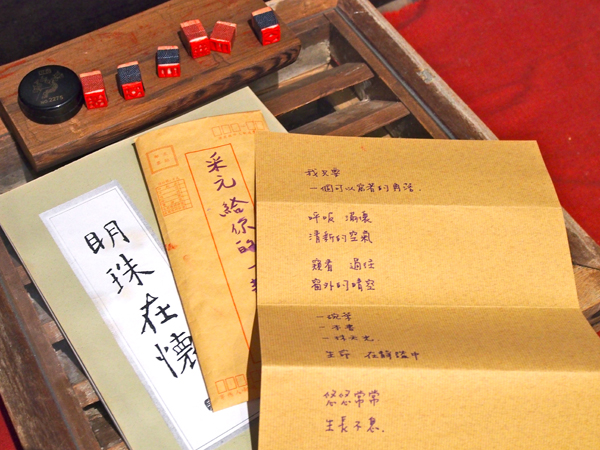 明珠在懷
采元給你的一
我只要
一個可以窩著的角落.
呼吸 滿懷
清新的空氣
窺看 過往
窗外的晴空
一碗茶
一本書
一抹天光
生命 在靜謐中
悠悠常常
生長不息.